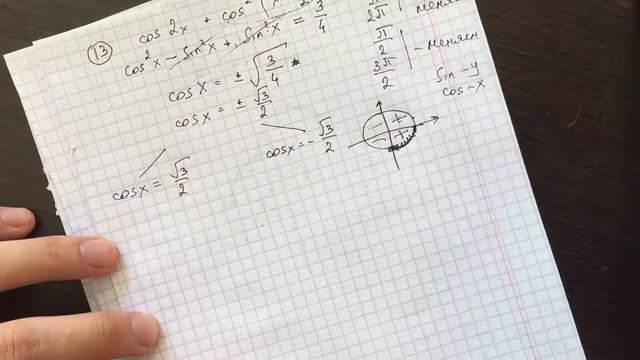 13
cos 2x + cos²
cos²x - sin²x + sin²x = 3/4
cos x = ± √3/4
cos x = ± √3/2
cos x = √3/2
cos x = - √3/2
2π
π/2
3π/2
- меняем
sin - y
cos - x
- +
- +